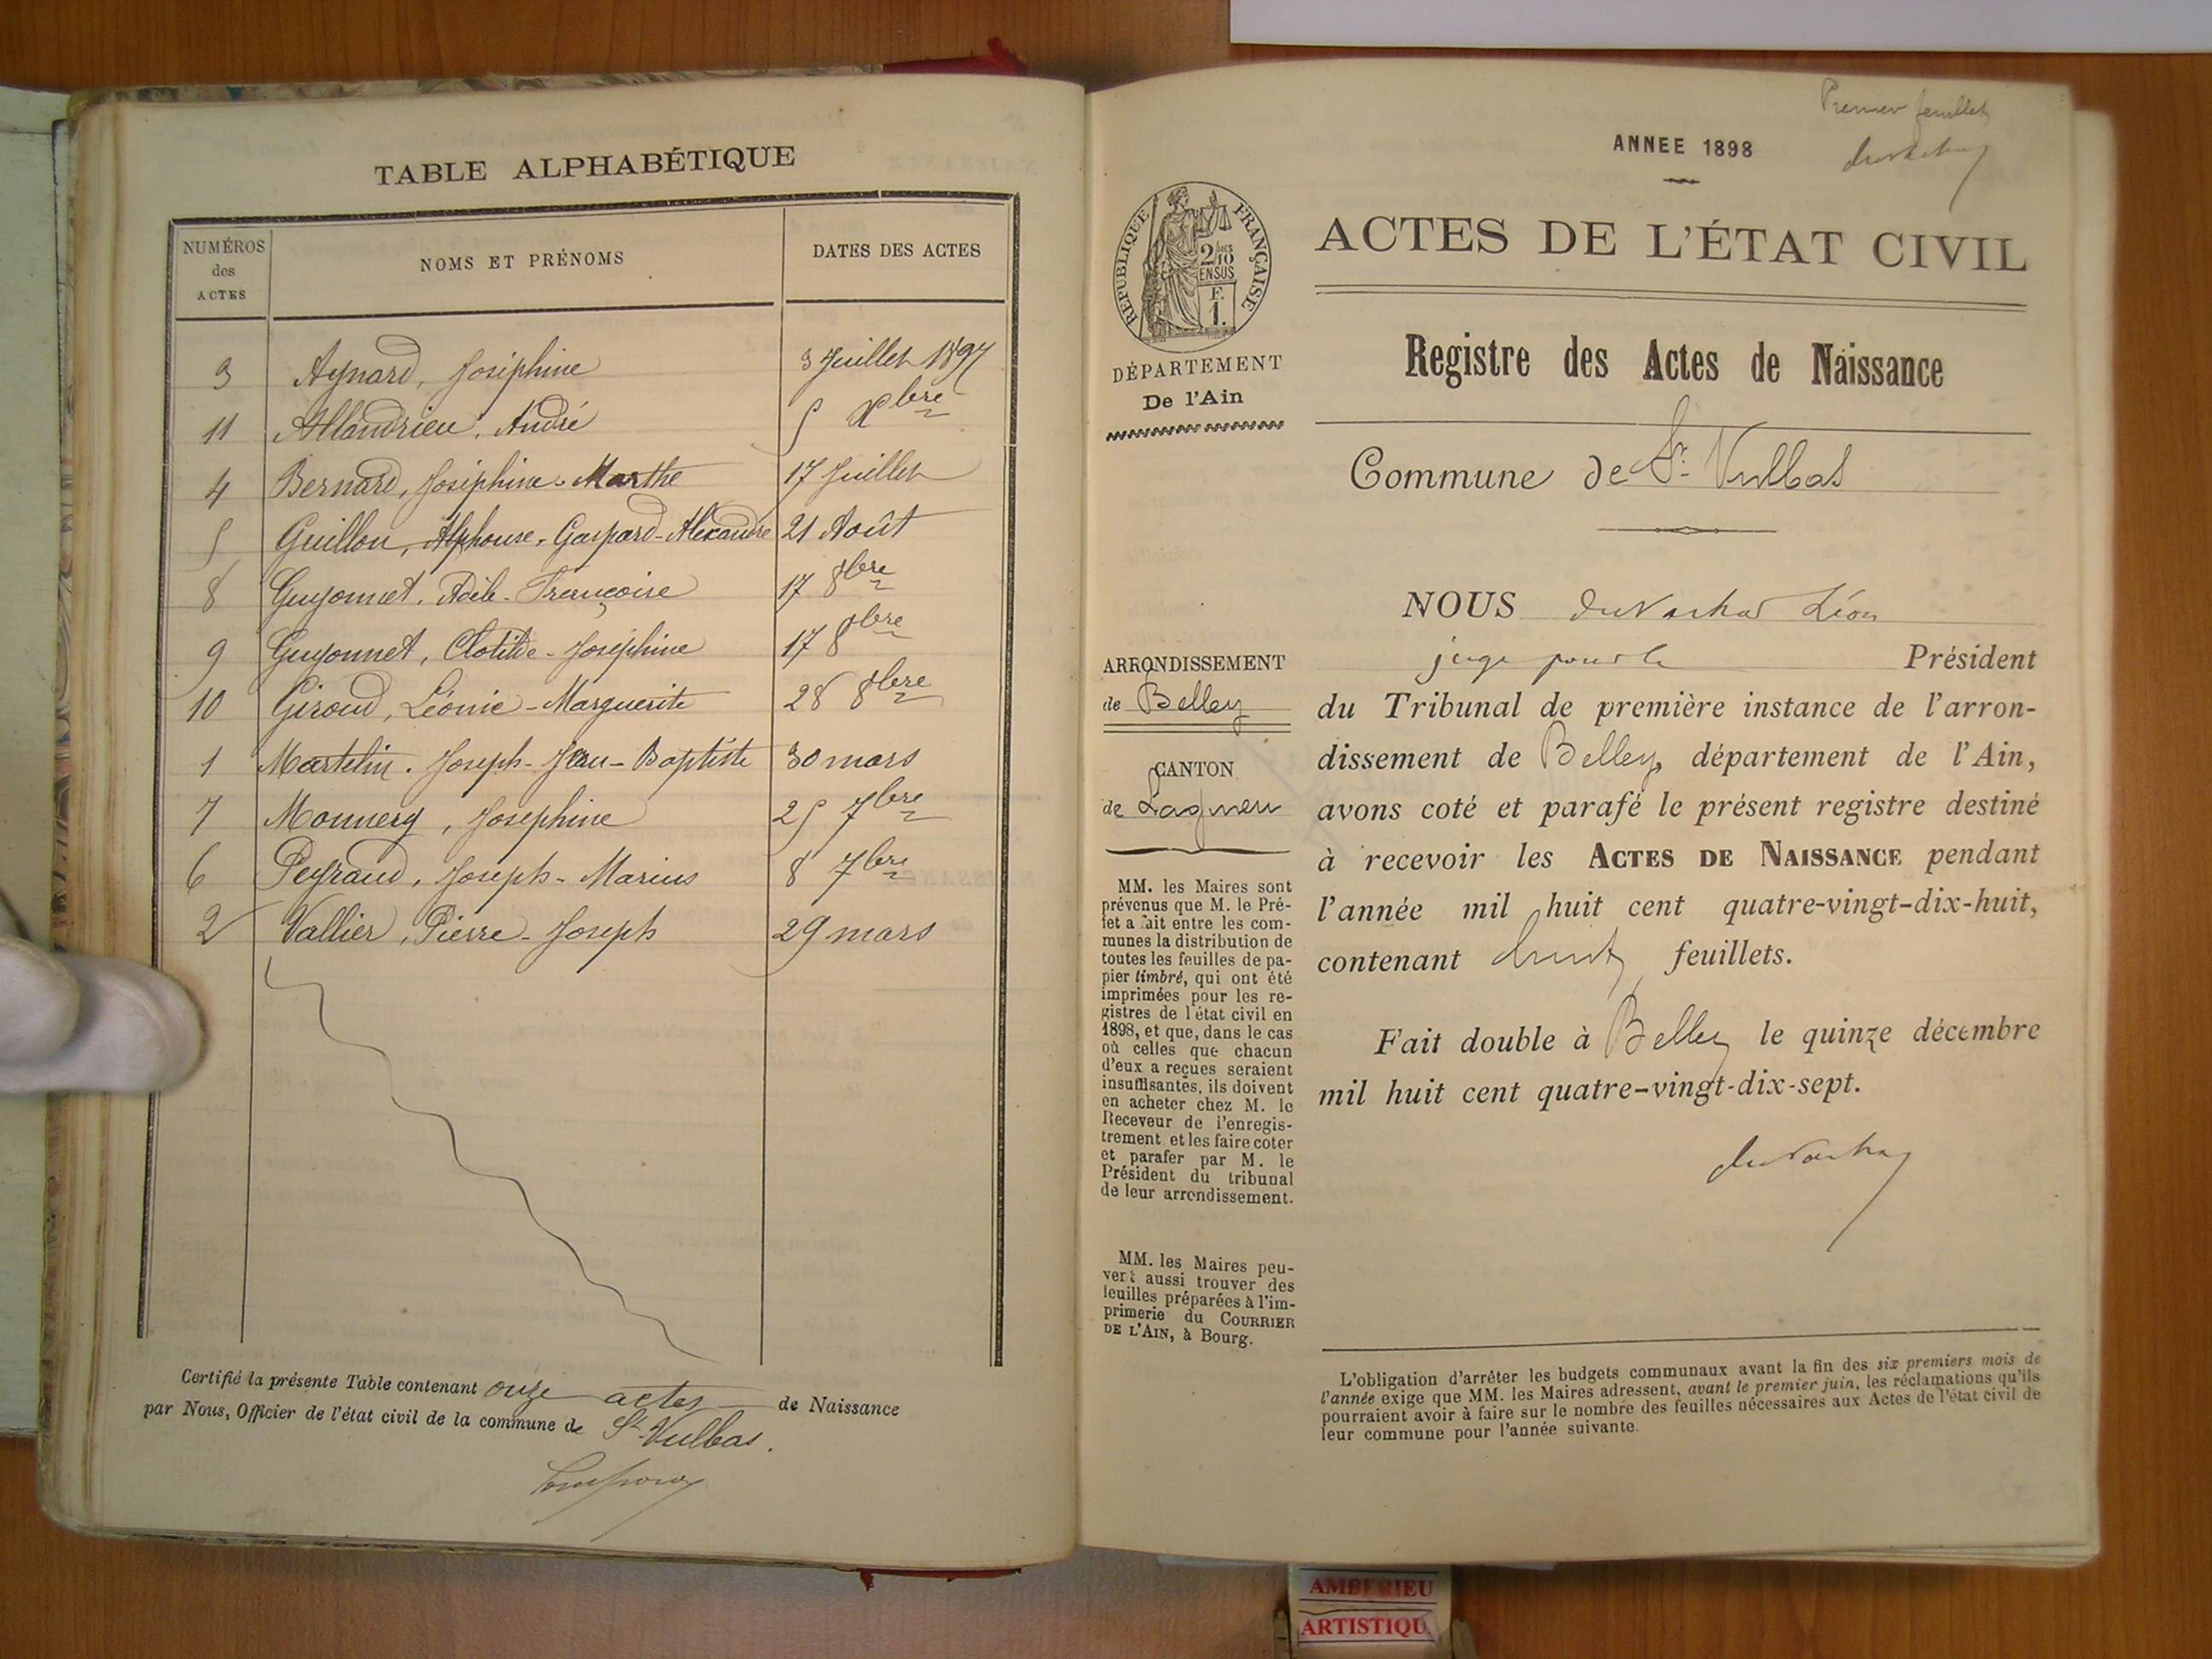 TABLE ALPHABÉTIQUE
NUMÉROS des ACTES
NOMS ET PRÉNOMS
DATES DES ACTES
3 Aynard, Joséphine 3 Juillet 1897
11 Allandrieu, André 5 Xbre
4 Bernard, Joséphine-Marthe 17 Juillet
5 Guillon, Alphonse-Gaspard-Alexandre 21 Août
8 Guyonnet, Adèle-Françoise 17 8bre
9 Guyonnet, Clotilde-Joséphine 17 8bre
10 Giroud, Léonie-Marguerite 28 8bre
1 Martelin, Joseph-Jean-Baptiste 30 mars
7 Monnery, Joséphine 25 7bre
6 Peyraud, Joseph-Marius 8 7bre
2 Vallier, Pierre-Joseph 29 mars
Certifié la présente Table contenant onze actes de Naissance
par Nous, Officier de l'état civil de la commune de St-Vulbas.
Premier feuillet
ANNEE 1898
RÉPUBLIQUE FRANÇAISE
2/10
EN SUS
F.
1.
ACTES DE L'ÉTAT CIVIL
DÉPARTEMENT
De l'Ain
Registre des Actes de Naissance
Commune de St-Vulbas
ARRONDISSEMENT
de Belley
CANTON
de Lagnieu
MM. les Maires sont
prévenus que M. le Pré-
fet a fait entre les com-
munes la distribution de
toutes les feuilles de pa-
pier timbré, qui ont été
imprimées pour les re-
gistres de l'état civil en
1898, et que, dans le cas
où celles que chacun
d'eux a reçues seraient
insuffisantes, ils doivent
en acheter chez M. le
Receveur de l'enregis-
trement et les faire coter
et parafer par M. le
Président du tribunal
de leur arrondissement.
MM. les Maires peu-
vent aussi trouver des
feuilles préparées à l'im-
primerie du COURRIER
DE L'AIN, à Bourg.
NOUS Léon
juge pour le Président
du Tribunal de première instance de l'arron-
dissement de Belley, département de l'Ain,
avons coté et parafé le présent registre destiné
à recevoir les ACTES DE NAISSANCE pendant
l'année mil huit cent quatre-vingt-dix-huit,
contenant feuillets.
Fait double à Belley le quinze décembre
mil huit cent quatre-vingt-dix-sept.
L'obligation d'arrêter les budgets communaux avant la fin des six premiers mois de
l'année exige que MM. les Maires adressent, avant le premier juin, les réclamations qu'ils
pourraient avoir à faire sur le nombre des feuilles nécessaires aux Actes de l'état civil de
leur commune pour l'année suivante.
AMBERIEU
ARTISTIQU